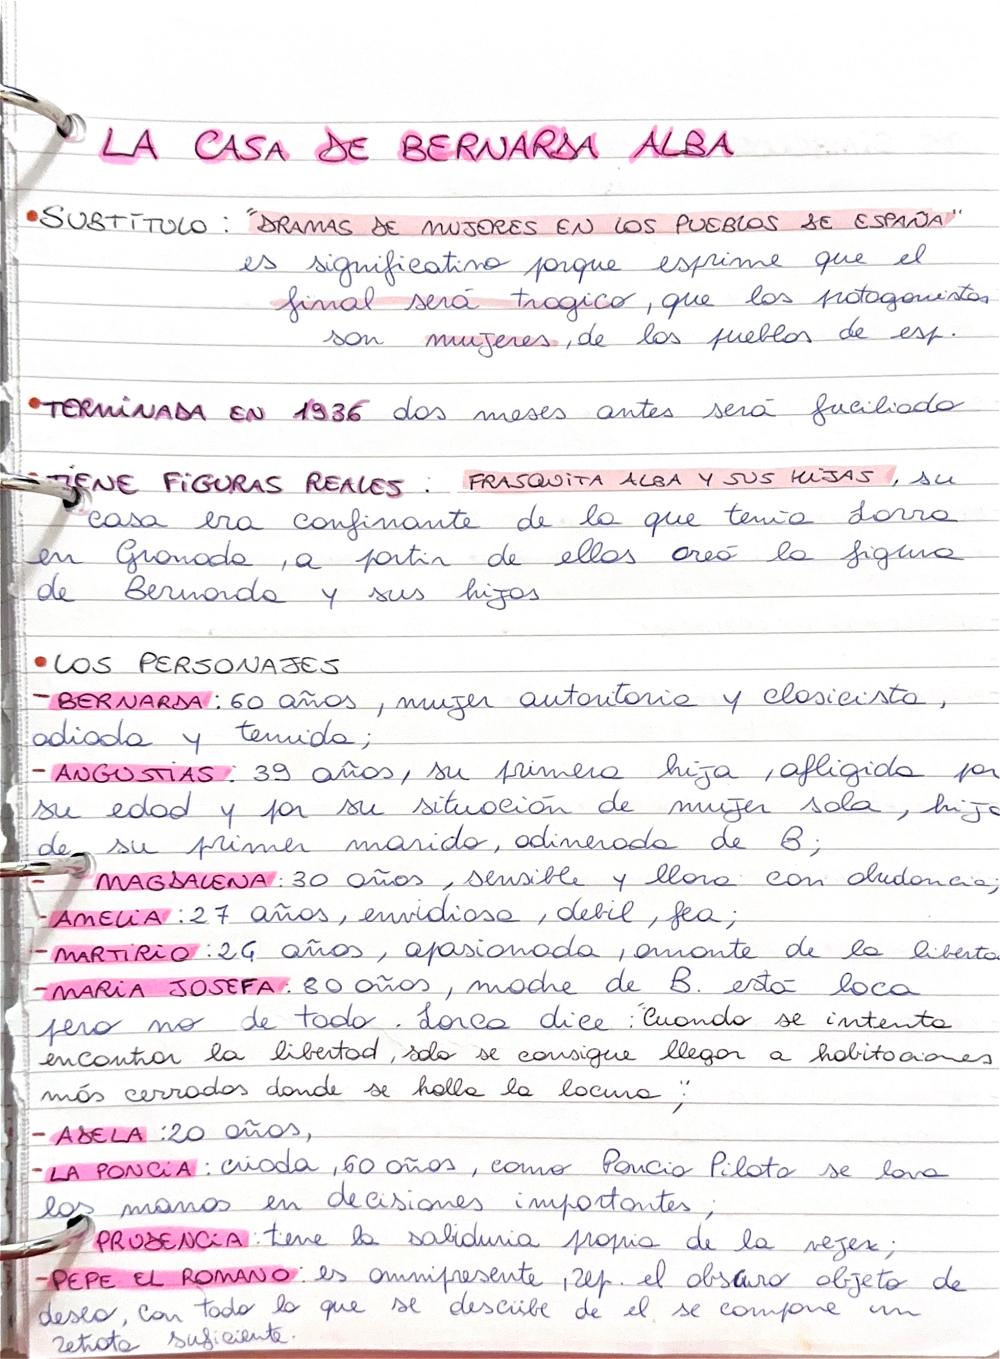 LA CASA DE BERNARDA ALBA
•SUBTÍTULO : "DRAMAS DE MUJERES EN LOS PUEBLOS DE ESPAÑA"
es significativo porque esprime que el
final será trágico, que las potagonistas
son mujeres, de los pueblos de esp.
•TERMINADA EN 1936 dos meses antes será fuciliado
•TIENE FIGURAS REALES : FRASQUITA ALBA Y SUS HIJAS, su
casa era confinante de la que tenía Lorra
en Granada, a partir de ellas creó la figura
de Bernarda y sus hijas
•LOS PERSONAJES
-BERNARDA: 60 años, mujer autoritaria y clasicista,
odiada y temida;
-ANGUSTIAS: 39 años, su primera hija, afligida por
su edad y por su situación de mujer sola, hija
de su primer marido, adinerada de B;
- MAGDALENA: 30 años, sensible y llora con abudancia;
-AMELIA: 27 años, envidiosa, debil, fea;
-MARTIRIO: 24 años, apasionada, amante de la liberta
-MARIA JOSEFA: 80 años, madre de B. está loca
pero no de todo. Lorca dice: "Cuando se intenta
encontrar la libertad, solo se consigue llegar a habitaciones
más cerradas donde se halla la locura";
- ADELA: 20 años,
-LA PONCIA: criada, 60 años, como Poncio Pilato se lava
las manos en decisiones importantes;
PRUDENCIA: tiene la sabiduria propia de la vejez;
-PEPE EL ROMANO: es omnipresente, rep. el obscuro objeto de
deseo, con todo lo que se describe de el se compone un
retrato suficiente.